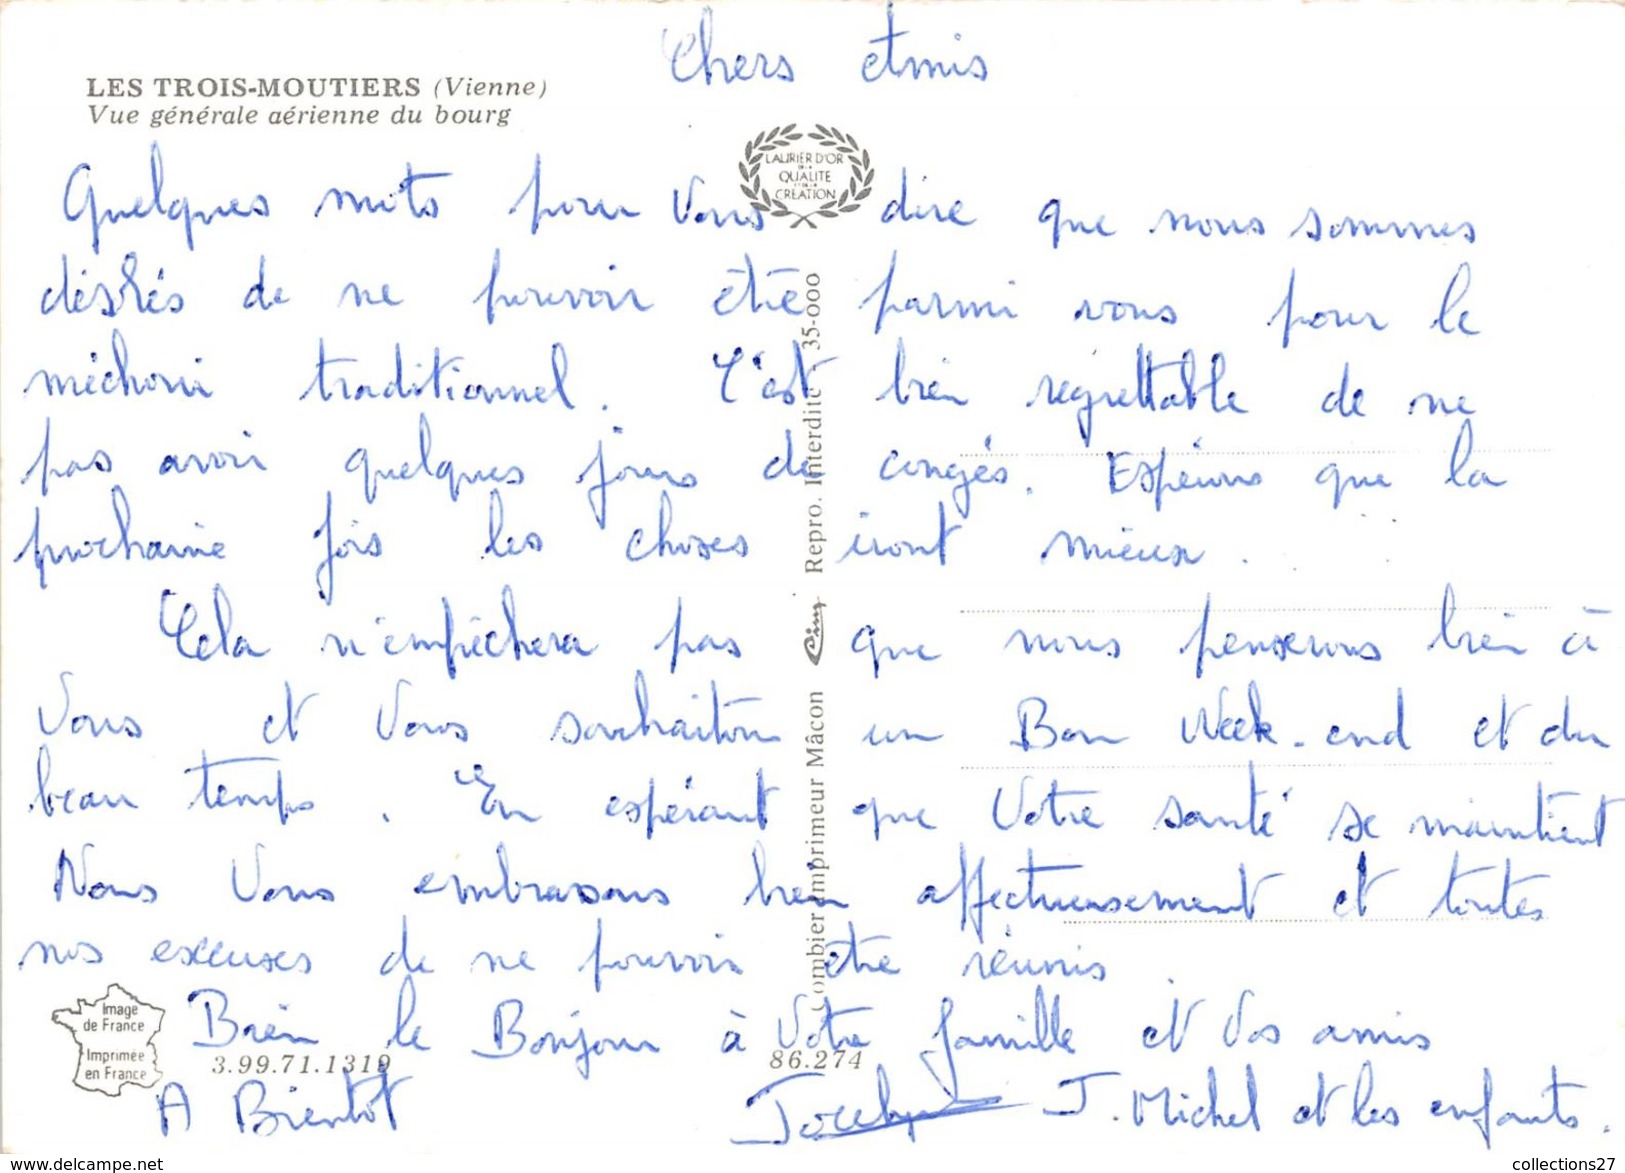 Chers Amis
LES TROIS-MOUTIERS (Vienne)
Vue générale aérienne du bourg
LAURIER D'OR
DE LA
QUALITE
ET DE LA
CREATION
Quelques mots pour Vous dire que nous sommes
désolés de ne pouvoir être parmi vous pour le
méchoui traditionnel. C'est bien regrettable de ne
pas avoir quelques jours de congés. Espérons que la
prochaine fois les choses iront mieux.
Cela n'empêchera pas que nous penserons bien à
Vous et Vous souhaitons un Bon Week-end et du
beau temps. En espérant que Votre santé se maintient
Nous Vous embrassons bien affectueusement et toutes
nos excuses de ne pouvoir être réunis.
Bien le Bonjour à Votre famille et Vos amis
A Bientôt
Jocelyne J. Michel et les enfants.
Combier Imprimeur Mâcon Cim Repro. Interdite 35-000
Image
de France
Imprimée
en France
3.99.71.1319
86.274
collections27